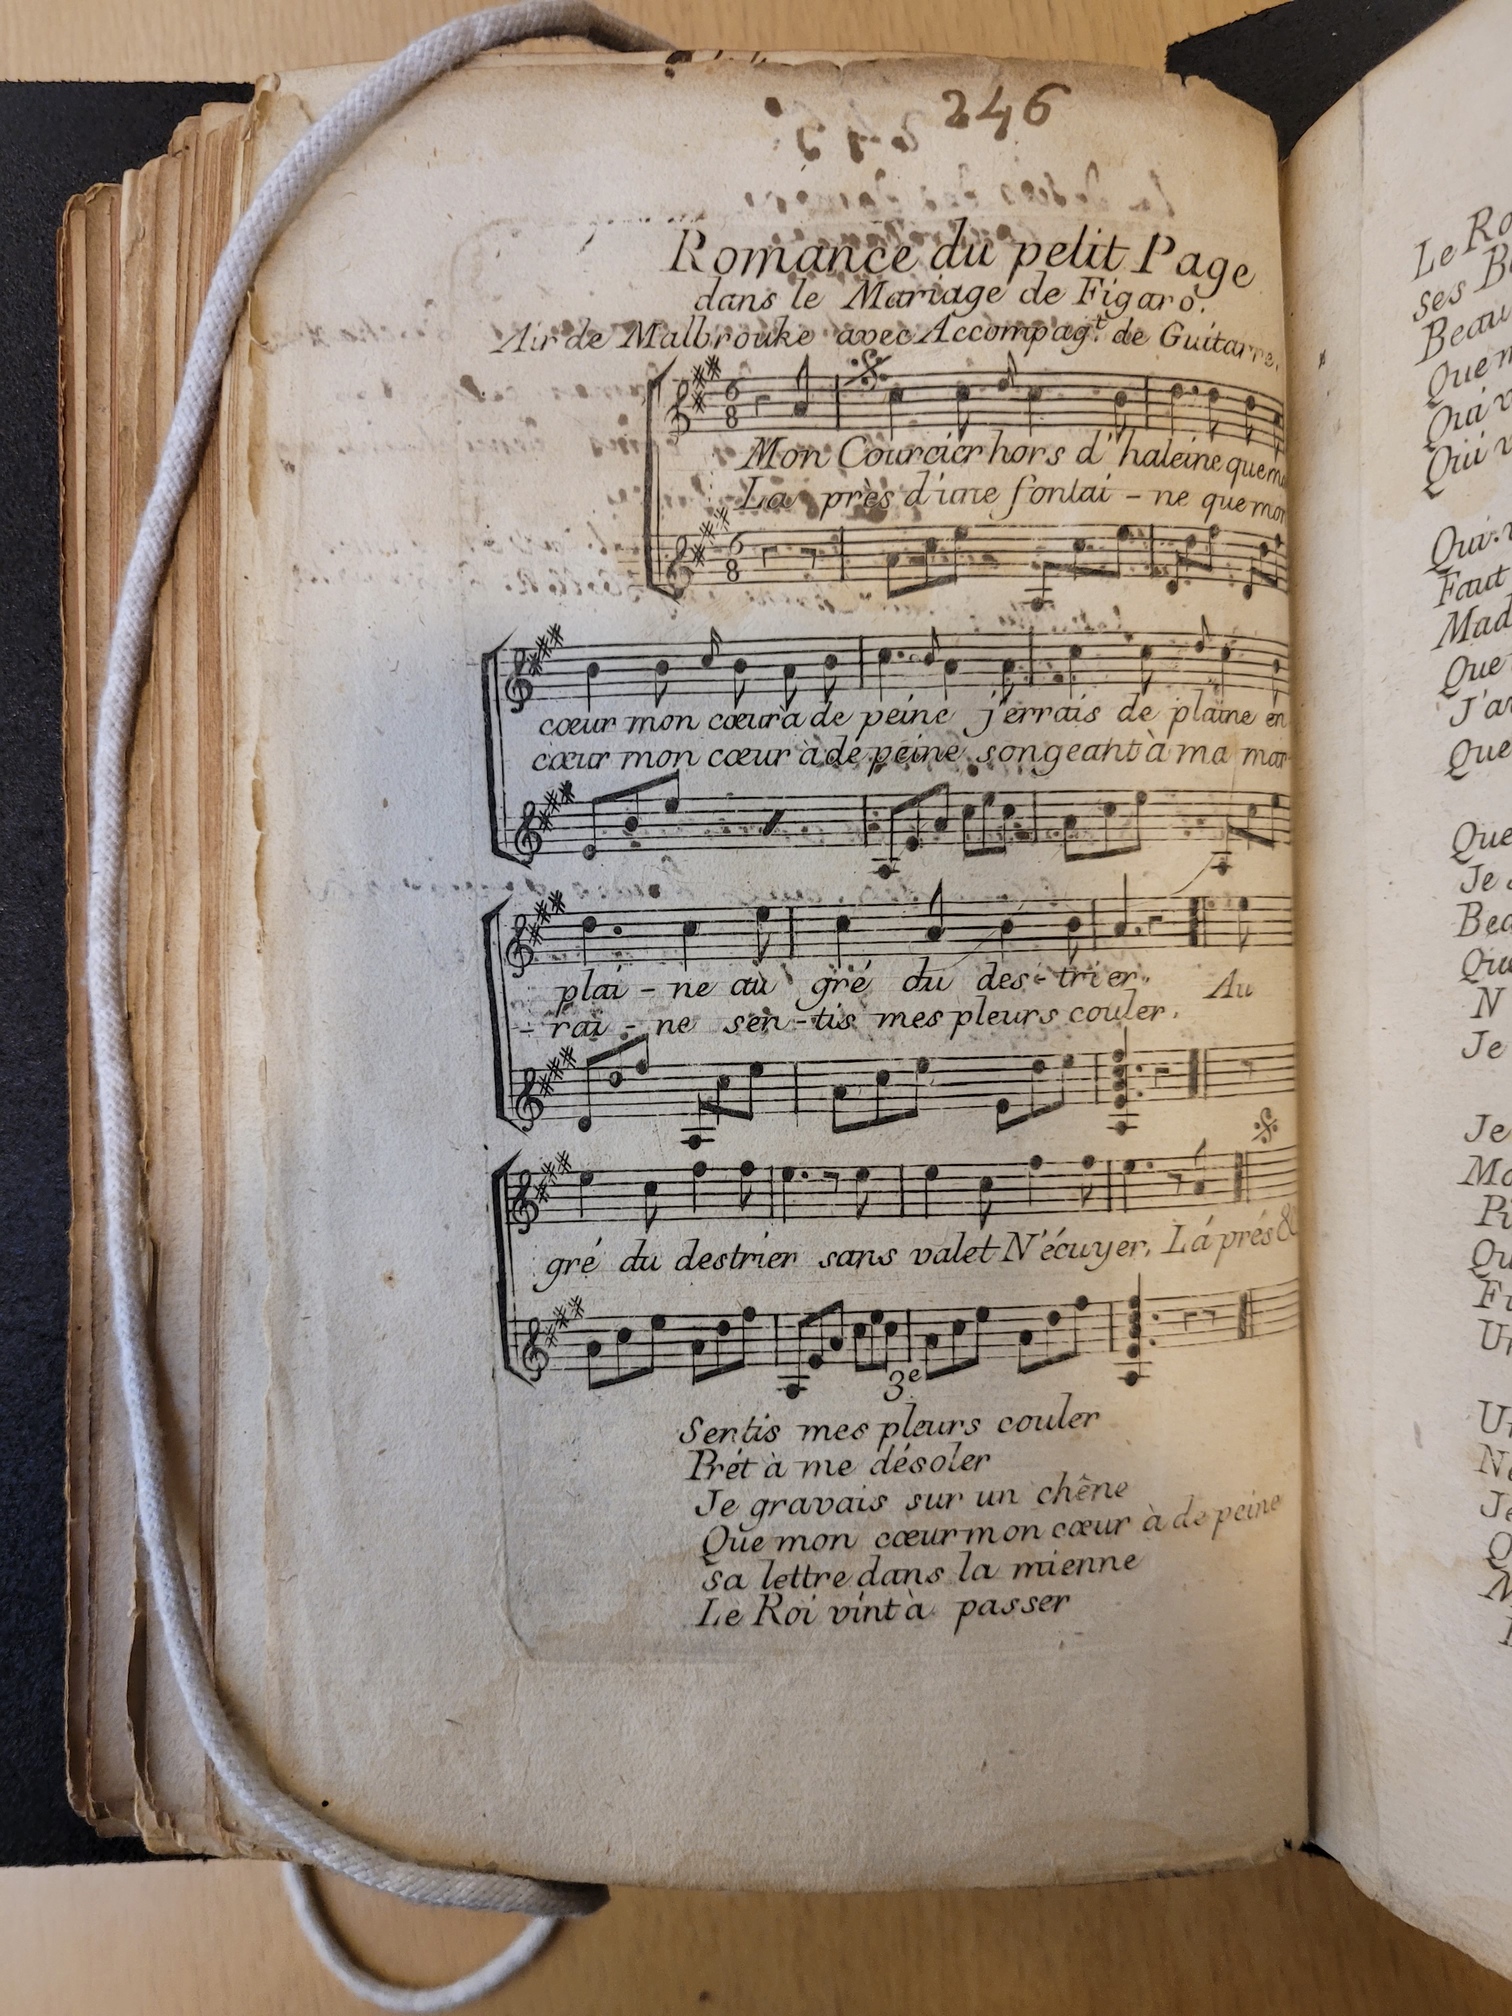 246
Romance du petit Page
dans le Mariage de Figaro.
Air de Malbrouke avec Accompag.t de Guitarre.
Mon Courcier hors d'haleine que
La près d'une fontai - ne que mon
cœur mon cœur à de peine j'errais de plaine en
cœur mon cœur à de peine songeant à ma mar
plai - ne au gré du des - trier. Au
- rai - ne sen - tis mes pleurs couler.
gré du destrier sans valet N'écuyer, Lá prés &
3e
Sentis mes pleurs couler
Prét à me désoler
Je gravais sur un chêne
Que mon cœur mon cœur à de peine
sa lettre dans la mienne
Le Roi vint à passer
Le Ro
ses B
Beau
Que
Qui
Qui
Qui
Faut
Mad
Que
J'a
Que
Que
Je
Bea
Qu
N
Je
Je
Mo
Pi
Qu
Fu
Un
Un
Je